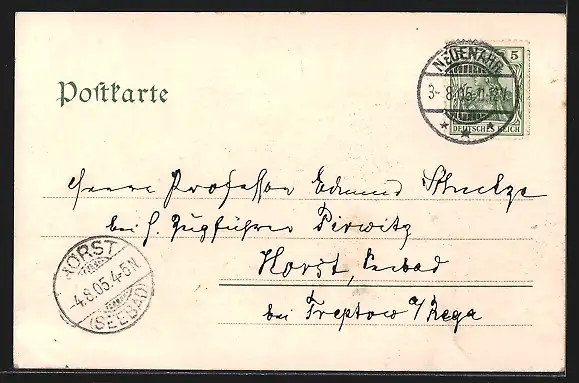 Postkarte
NEUENAHR
3-8.05.11-12V.
5
DEUTSCHES REICH
Herrn Professor Edmund
bei H. Zugführer Pirwitz
Horst, Seebad
bei Treptow a/Rega
HORST
4.8.05.4-5N
(SEEBAD)